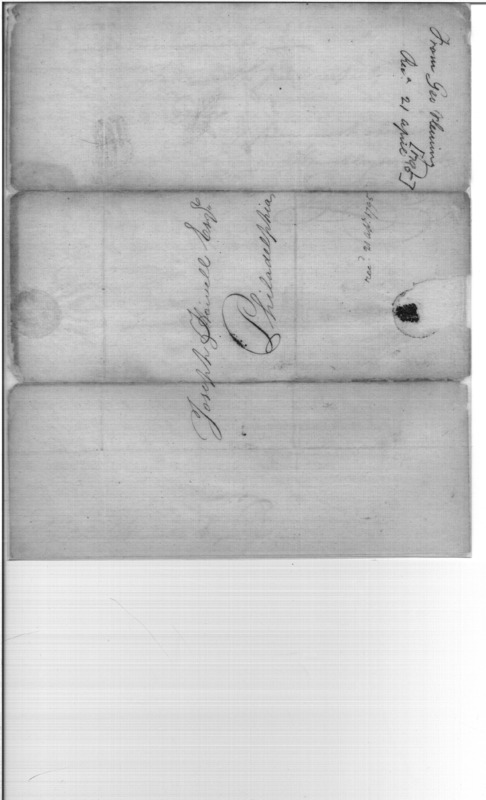 From Geo Fleming
Recd 21 April
Joseph Howell Esqr
Philadelphia